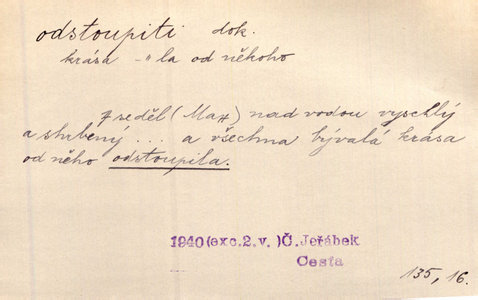 odstoupiti dok.
krása -"la od někoho
zseděl (Max) nad vodou vyschlý
a shrbený ... a všechna bývalá krása
od něho odstoupila.
1940(exc.2.v.)Č.Jeřábek
Cesta
135, 16.